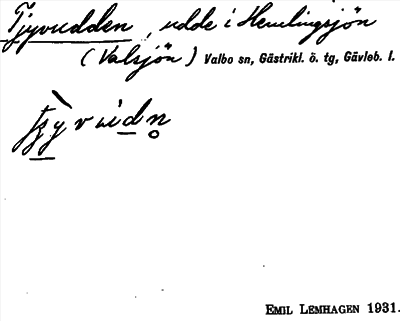 Tjyvudden, udde i Hemlingsjön
(Valsjön) Valbo sn, Gästrikl. ö. tg, Gävleb. l.
EMIL LEMHAGEN 1931.